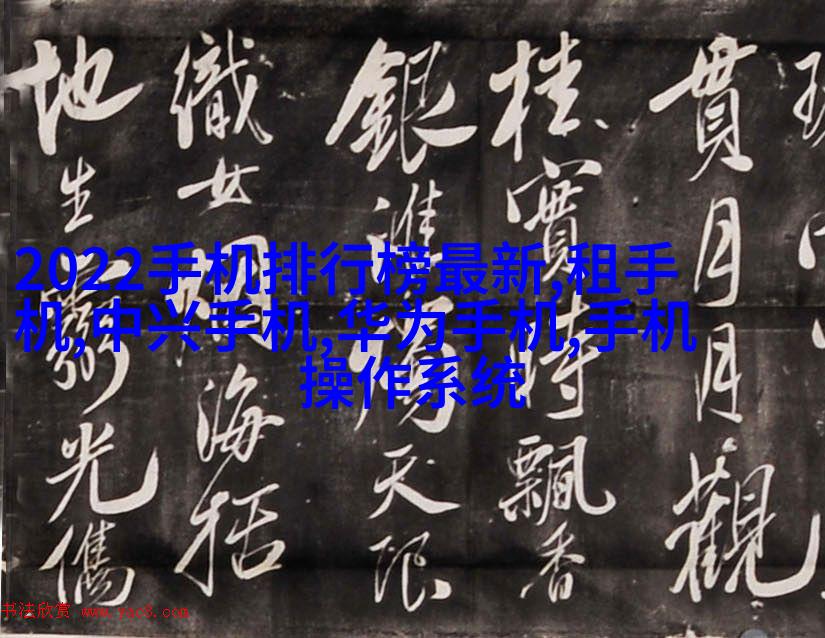 2022手机排行榜最新,租手
机,中兴手机,华为手机,手机
操作系统
貫月月觀
桂實時飄香
銀淮天限
織女海括
地生光儁
书法欣赏 www.yac8.com